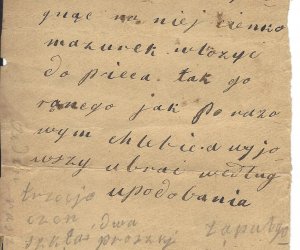 gnąc na niej cienko
mazurek włożyć
do pieca tak go
rącego jak po razo
wym chlebie a wyjo
wszy ubrać według
upodobania
trzecio
dwa